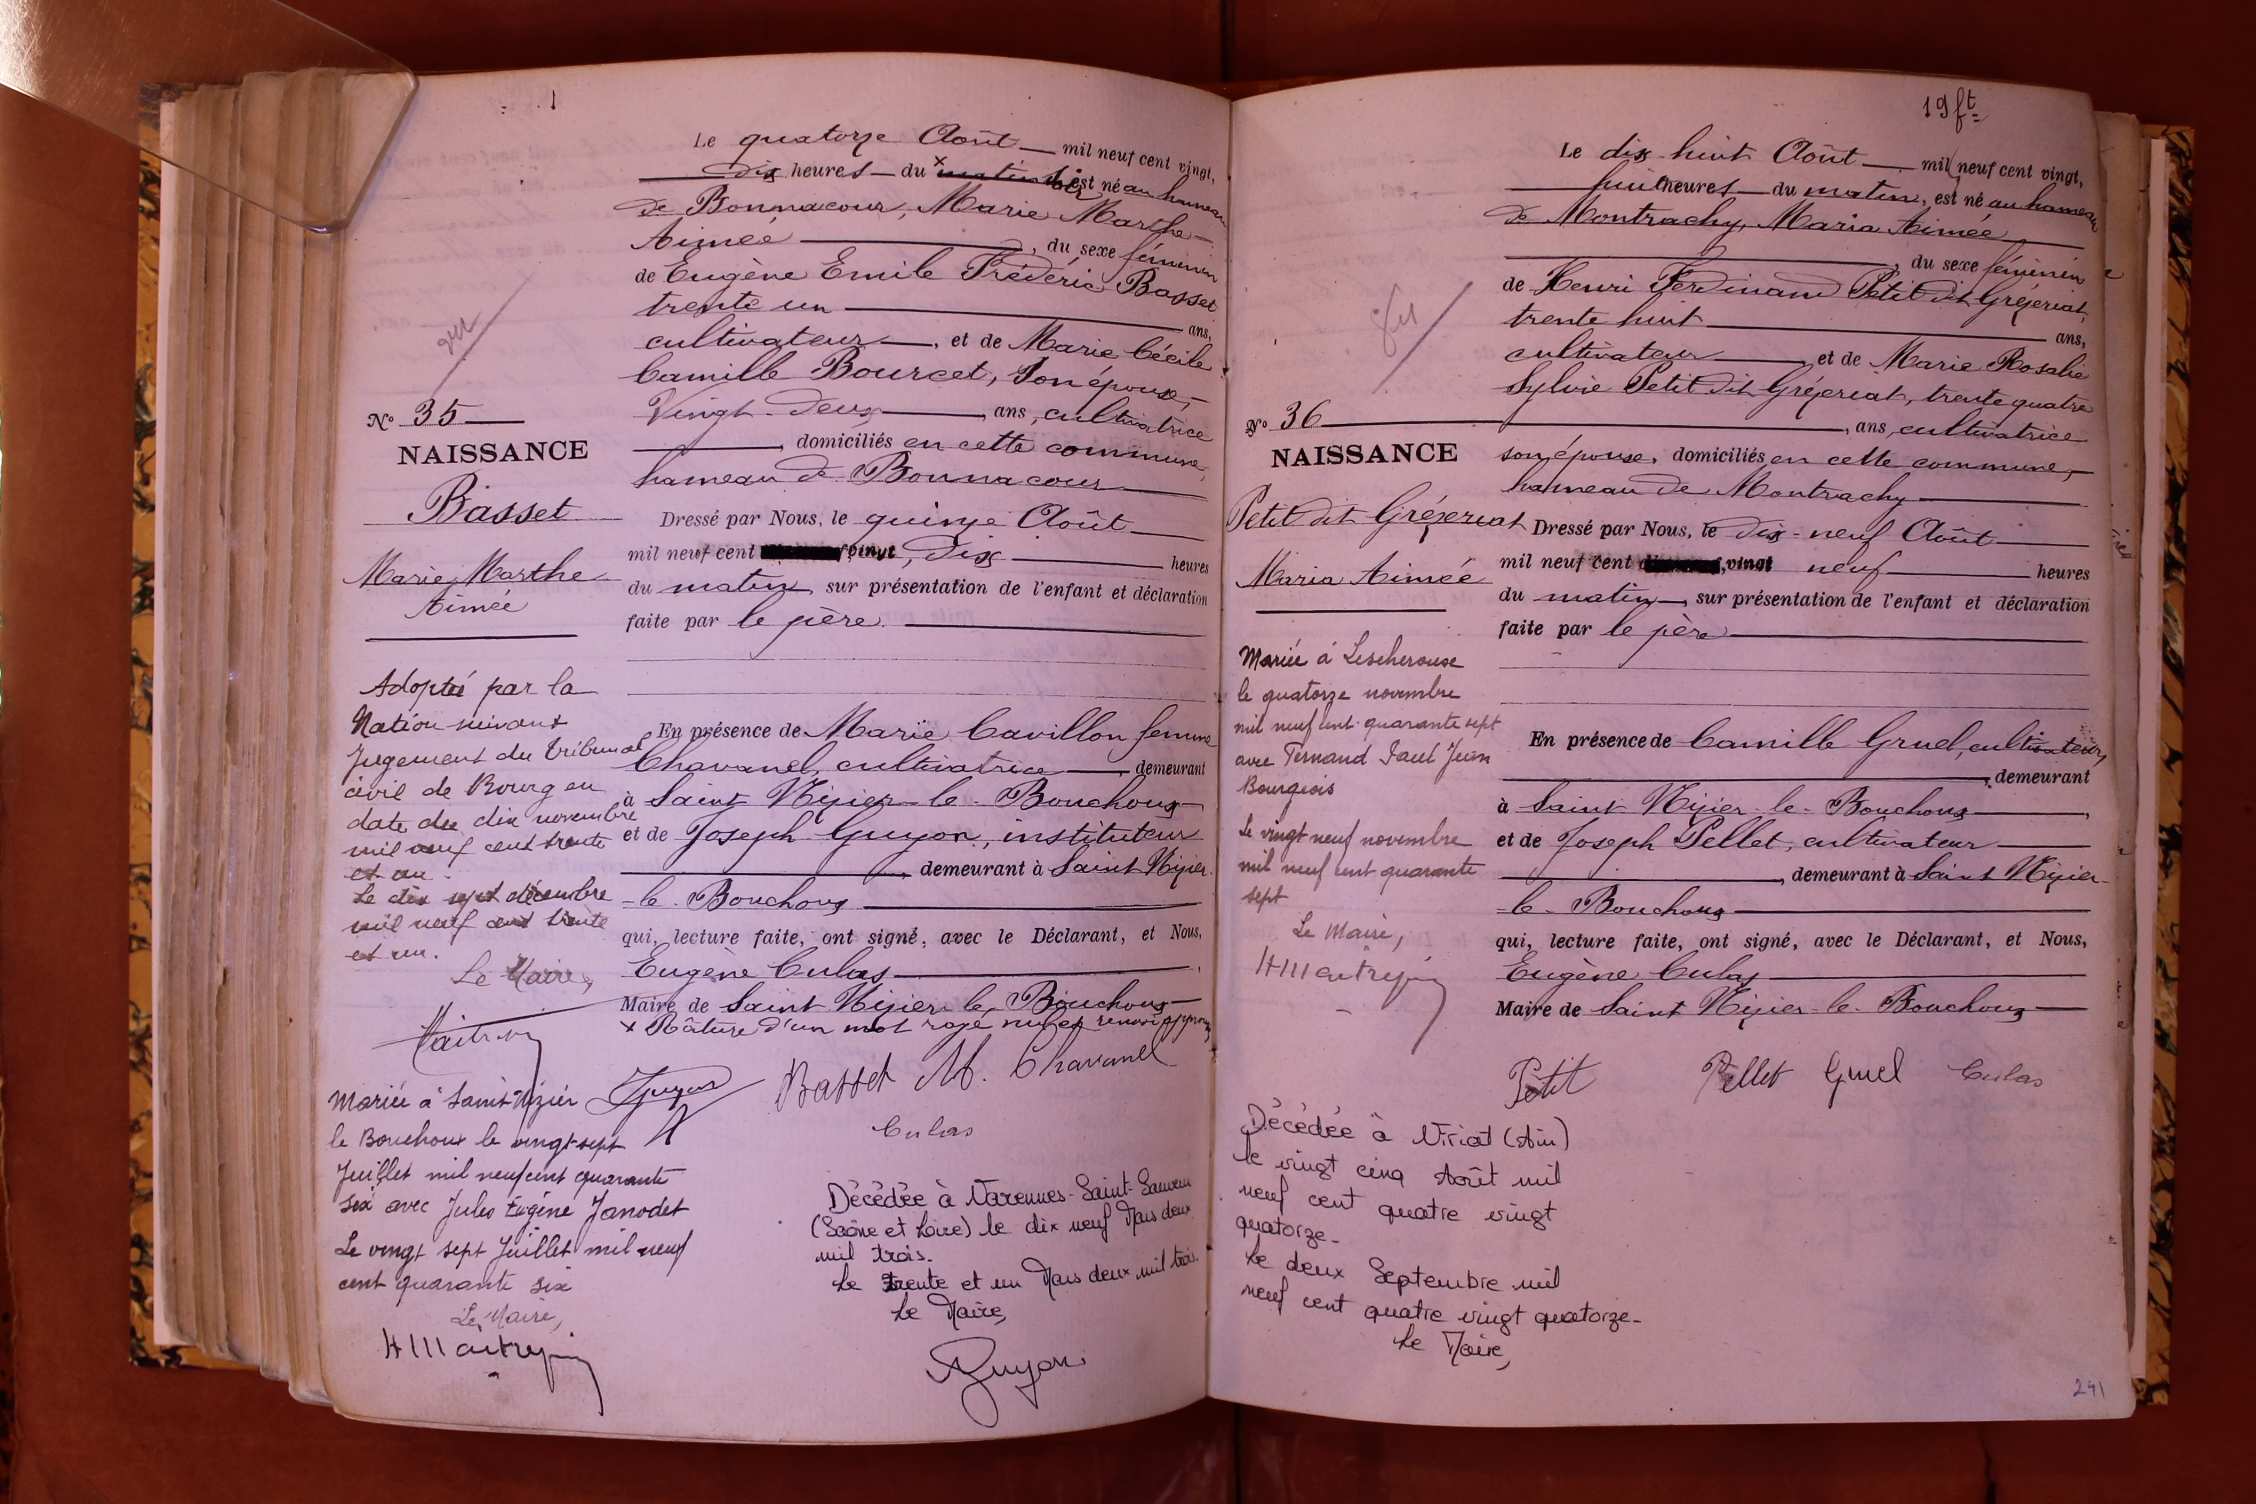 Le quatorze Août — mil neuf cent vingt,
dix heures — du × matin soir est né au hameau
de Bonnacour, Marie Marthe —
Aimée —, du sexe féminin
de Eugène Emile Frédéric Basset
trente un — ans,
cultivateur —, et de Marie Cécile
Camille Bourcet, son épouse, —
Vingt-deux — ans, cultivatrice
—, domiciliés en cette commune,
hameau de Bonnacour —
N° 35 —
NAISSANCE
Basset
Marie Marthe
Aimée
Dressé par Nous, le quinze Août —
mil neuf cent vingt, dix — heures
du matin, sur présentation de l'enfant et déclaration
faite par le père. —
En présence de Marie Cavillon femme
Chavanel, cultivatrice —, demeurant
à Saint Nizier-le-Bouchoux —
et de Joseph Guyon, instituteur
—, demeurant à Saint Nizier-
-le-Bouchoux —
qui, lecture faite, ont signé, avec le Déclarant, et Nous,
Eugène Culas —,
Maire de Saint Nizier-le-Bouchoux —
× Râture d'un mot rayé nul et renvoi
Guyon Basset M. Chavanel
Culas
Adoptée par la
Nation suivant
Jugement du tribunal
civil de Bourg en
date du dix novembre
mil neuf cent trente
et un.
Le dix sept décembre
mil neuf cent trente
et un.
Le Maire,
Mariée à Saint Nizier
le Bouchoux le vingt-sept
Juillet mil neuf cent quarante
six avec Jules Eugène Janodet
Le vingt sept Juillet mil neuf
cent quarante six
Le Maire,
Décédée à Varennes-Saint-Sauveur
(Saône et Loire) le dix neuf Mars deux
mil trois.
Le trente et un Mars deux mil trois.
Le Maire,
Guyon
19 ft
Le dix-huit Août — mil neuf cent vingt,
huit heures — du matin, est né au hameau
de Montrachy, Maria Aimée
—, du sexe féminin
de Henri Ferdinand Petit dit Grézeriat,
trente huit — ans,
cultivateur —, et de Marie Rosalie
Sylvie Petit dit Grézeriat, trente quatre
—, ans, cultivatrice
son épouse, domiciliés en cette commune, —
hameau de Montrachy —
N° 36 —
NAISSANCE
Petit dit Grézeriat
Maria Aimée
Dressé par Nous, le dix-neuf Août —
mil neuf cent vingt neuf — heures
du matin —, sur présentation de l'enfant et déclaration
faite par le père —
En présence de Camille Gruel, cultivateur,
—, demeurant
à Saint Nizier-le-Bouchoux —,
et de Joseph Pellet, cultivateur —
—, demeurant à Saint Nizier-
-le-Bouchoux —
qui, lecture faite, ont signé, avec le Déclarant, et Nous,
Eugène Culas —
Maire de Saint Nizier-le-Bouchoux —
Petit Pellet Gruel Culas
Mariée à Lescheroux
le quatorze novembre
mil neuf cent quarante sept
avec Fernand Paul Jean
Bourgeois
Le vingt neuf novembre
mil neuf cent quarante
sept
Le Maire,
Décédée à Viriat (Ain)
le vingt cinq Août mil
neuf cent quatre vingt
quatorze-
Le deux Septembre mil
neuf cent quatre vingt quatorze-
Le Maire,
241